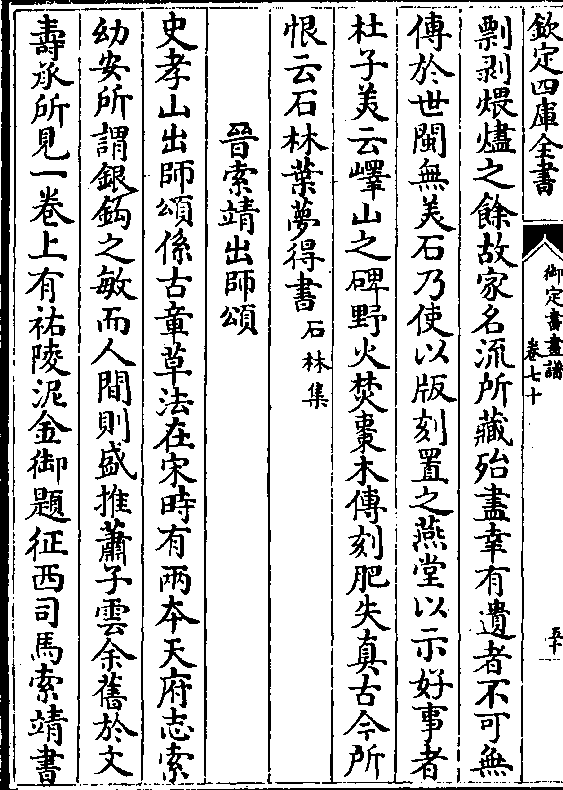 欽定四庫全書
御定書畫譜
卷七十
五十
剽剥煨燼之餘故家名流所藏殆盡幸有遺者不可無
傳於世閩無美石乃使以版刻置之燕堂以示好事者
杜子美云嶧山之碑野火焚棗木傳刻肥失真古今所
恨云石林葉夢得書石林集
晉索靖出師頌
史孝山出師頌係古章草法在宋時有兩本天府志索
幼安所謂銀鈎之敏而人間則盛推蕭子雲余舊於文
壽承所見一卷上有祐陵泥金御題征西司馬索靖書